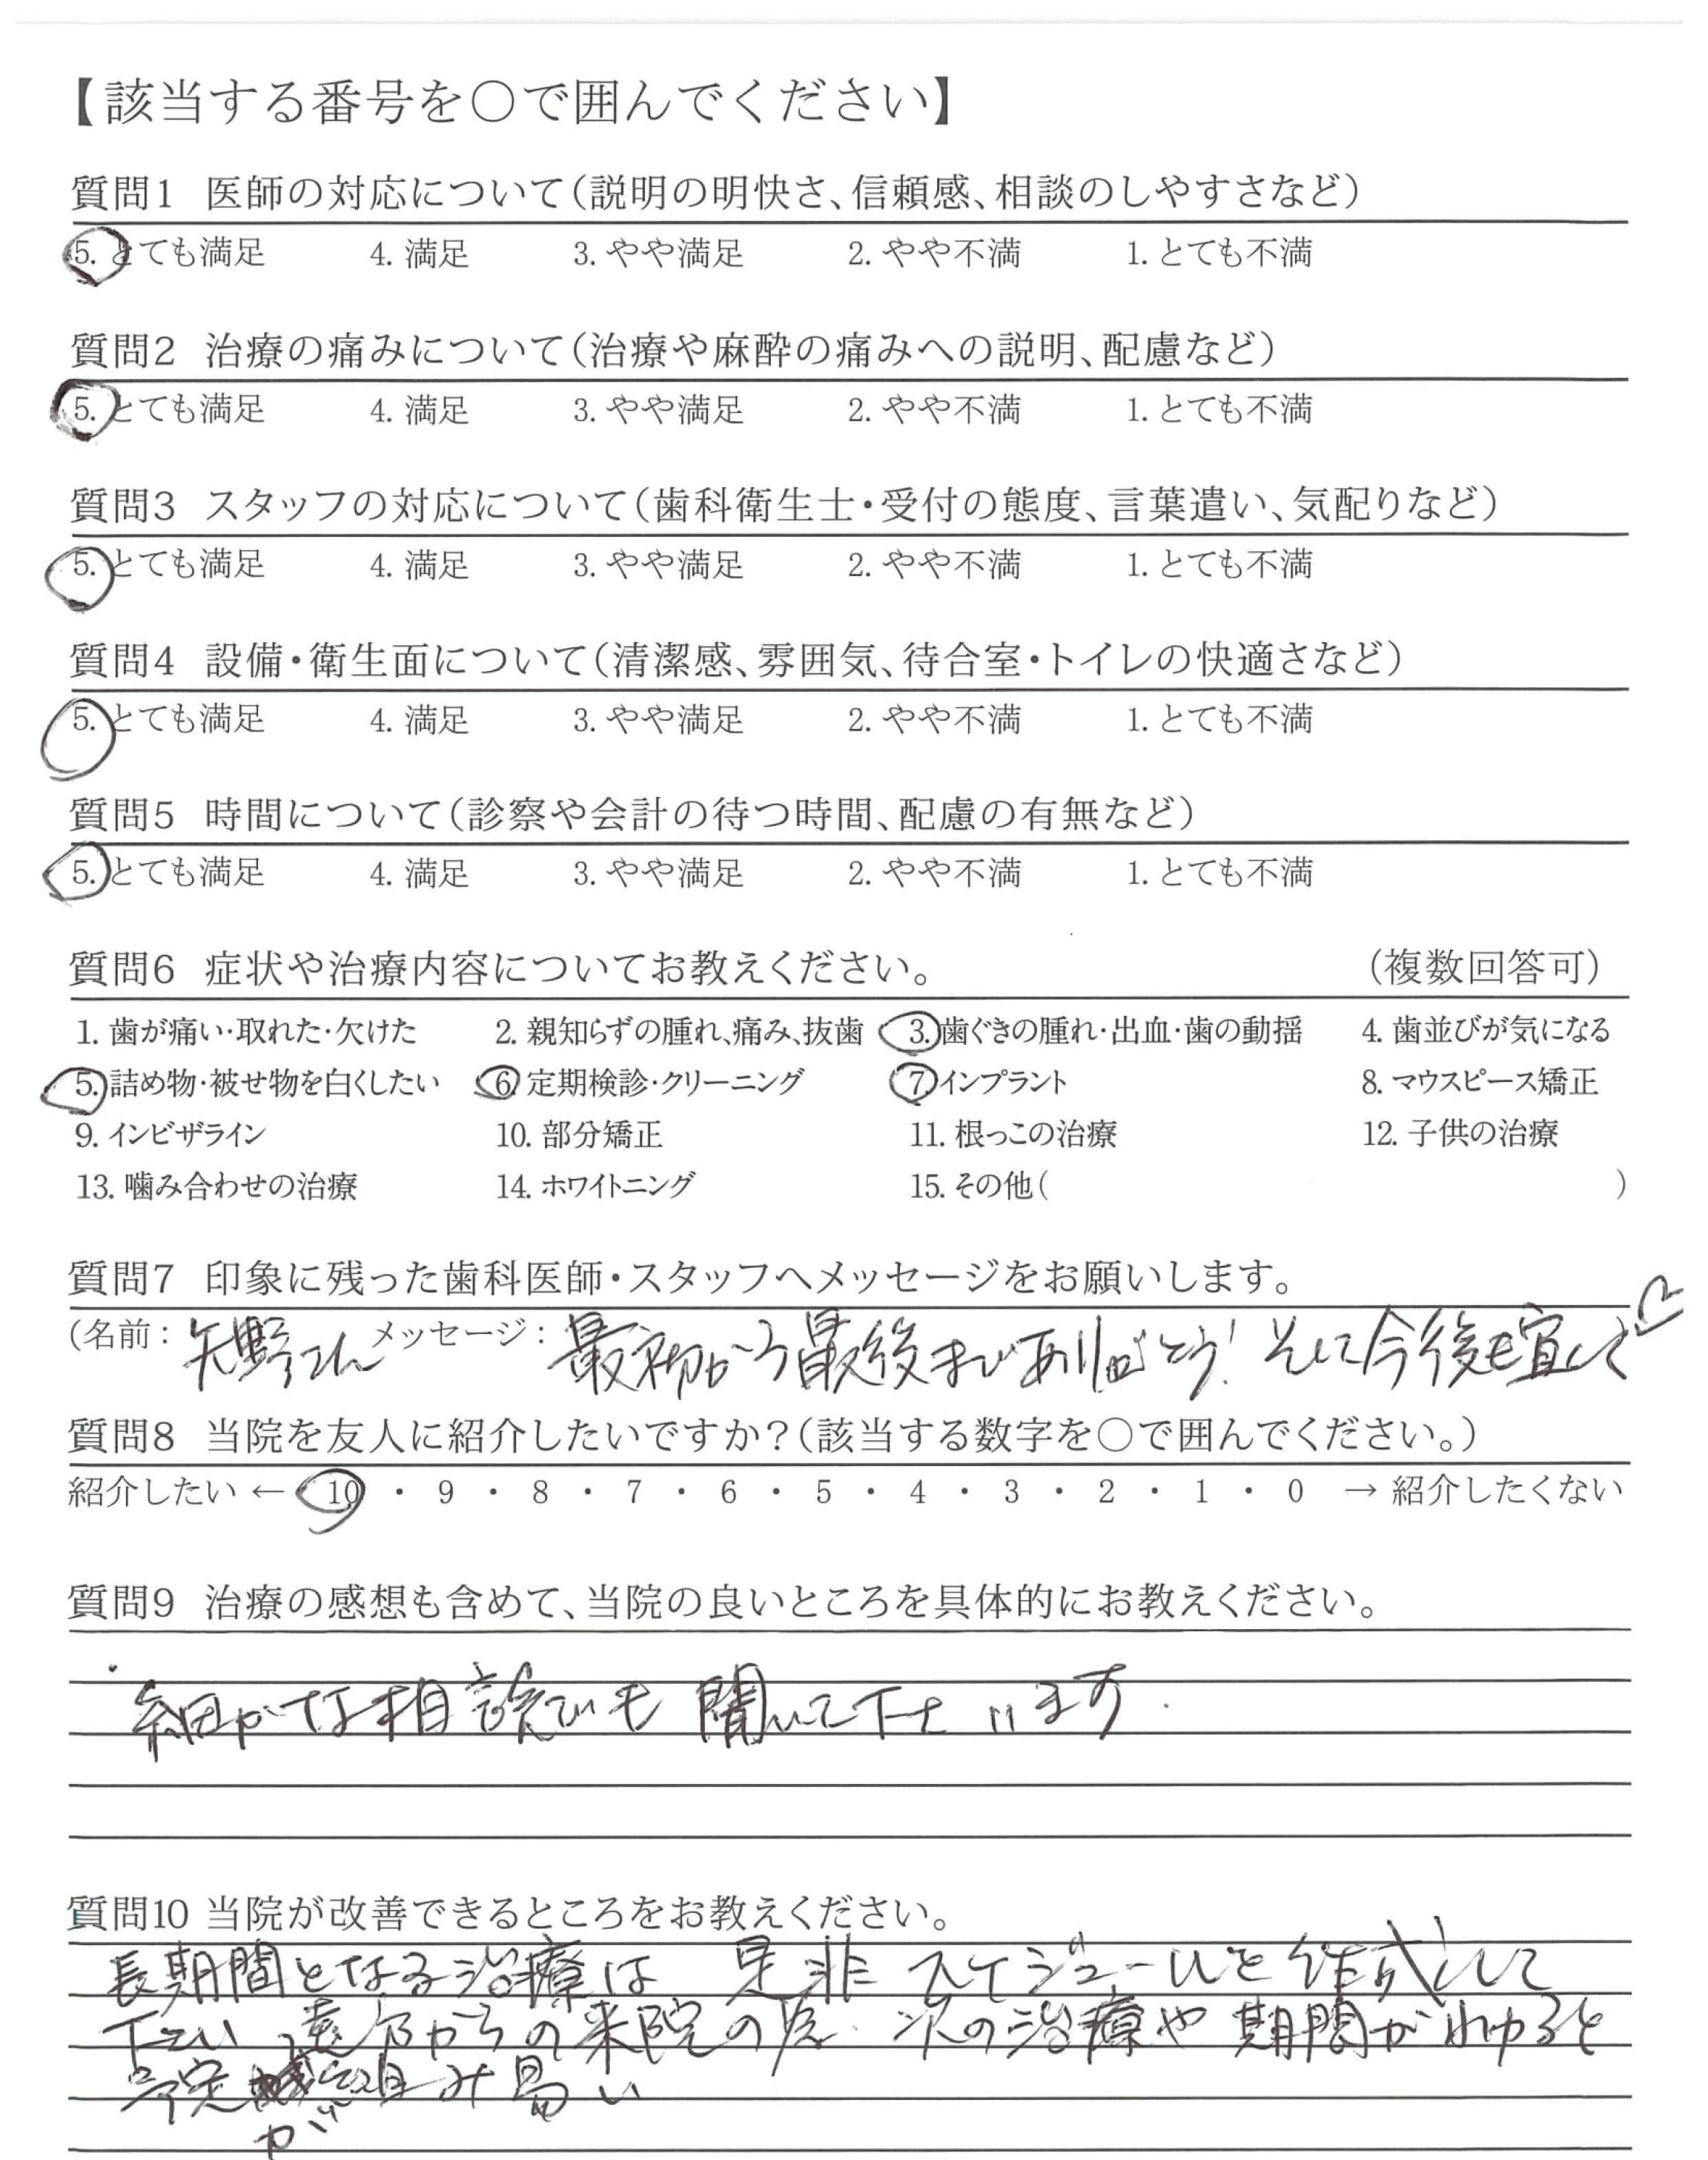 【該当する番号を〇で囲んでください】
質問1 医師の対応について(説明の明快さ、信頼感、相談のしやすさなど)
5. とても満足 4. 満足 3. やや満足 2. やや不満 1. とても不満
質問2 治療の痛みについて(治療や麻酔の痛みへの説明、配慮など)
5. とても満足 4. 満足 3. やや満足 2. やや不満 1. とても不満
質問3 スタッフの対応について(歯科衛生士・受付の態度、言葉遣い、気配りなど)
5. とても満足 4. 満足 3. やや満足 2. やや不満 1. とても不満
質問4 設備・衛生面について(清潔感、雰囲気、待合室・トイレの快適さなど)
5. とても満足 4. 満足 3. やや満足 2. やや不満 1. とても不満
質問5 時間について(診察や会計の待つ時間、配慮の有無など)
5. とても満足 4. 満足 3. やや満足 2. やや不満 1. とても不満
質問6 症状や治療内容についてお教えください。 (複数回答可)
1. 歯が痛い・取れた・欠けた 2. 親知らずの腫れ、痛み、抜歯 3. 歯ぐきの腫れ・出血・歯の動揺 4. 歯並びが気になる
5. 詰め物・被せ物を白くしたい 6. 定期検診・クリーニング 7. インプラント 8. マウスピース矯正
9. インビザライン 10. 部分矯正 11. 根っこの治療 12. 子供の治療
13. 噛み合わせの治療 14. ホワイトニング 15. その他( )
質問7 印象に残った歯科医師・スタッフへメッセージをお願いします。
(名前: 矢野さん メッセージ: 最初から最後までありがとう! そして今後も宜しく
質問8 当院を友人に紹介したいですか?(該当する数字を〇で囲んでください。)
紹介したい ← 10 ・ 9 ・ 8 ・ 7 ・ 6 ・ 5 ・ 4 ・ 3 ・ 2 ・ 1 ・ 0 → 紹介したくない
質問9 治療の感想も含めて、当院の良いところを具体的にお教えください。
細かな相談でも 聞いて下さいます.
質問10 当院が改善できるところをお教えください。
長期間となる治療は 是非 スケジュールを作成して
下さい 遠方からの来院の為. 次の治療や期間がわかると
予定が組み易い